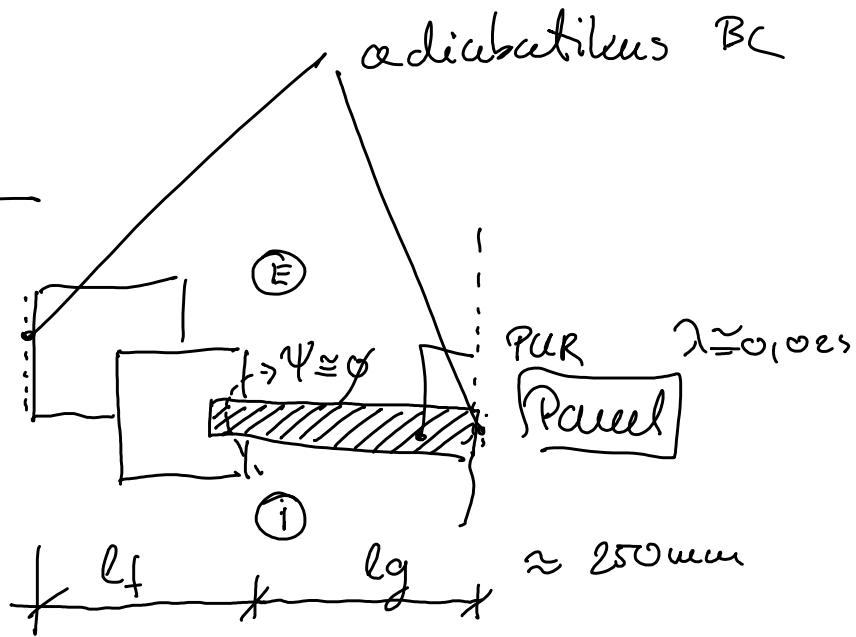 adiabatikus BC
E
Ψ≅0
PUR λ≅0,025
Panel
i
lf lg ≈ 250mm